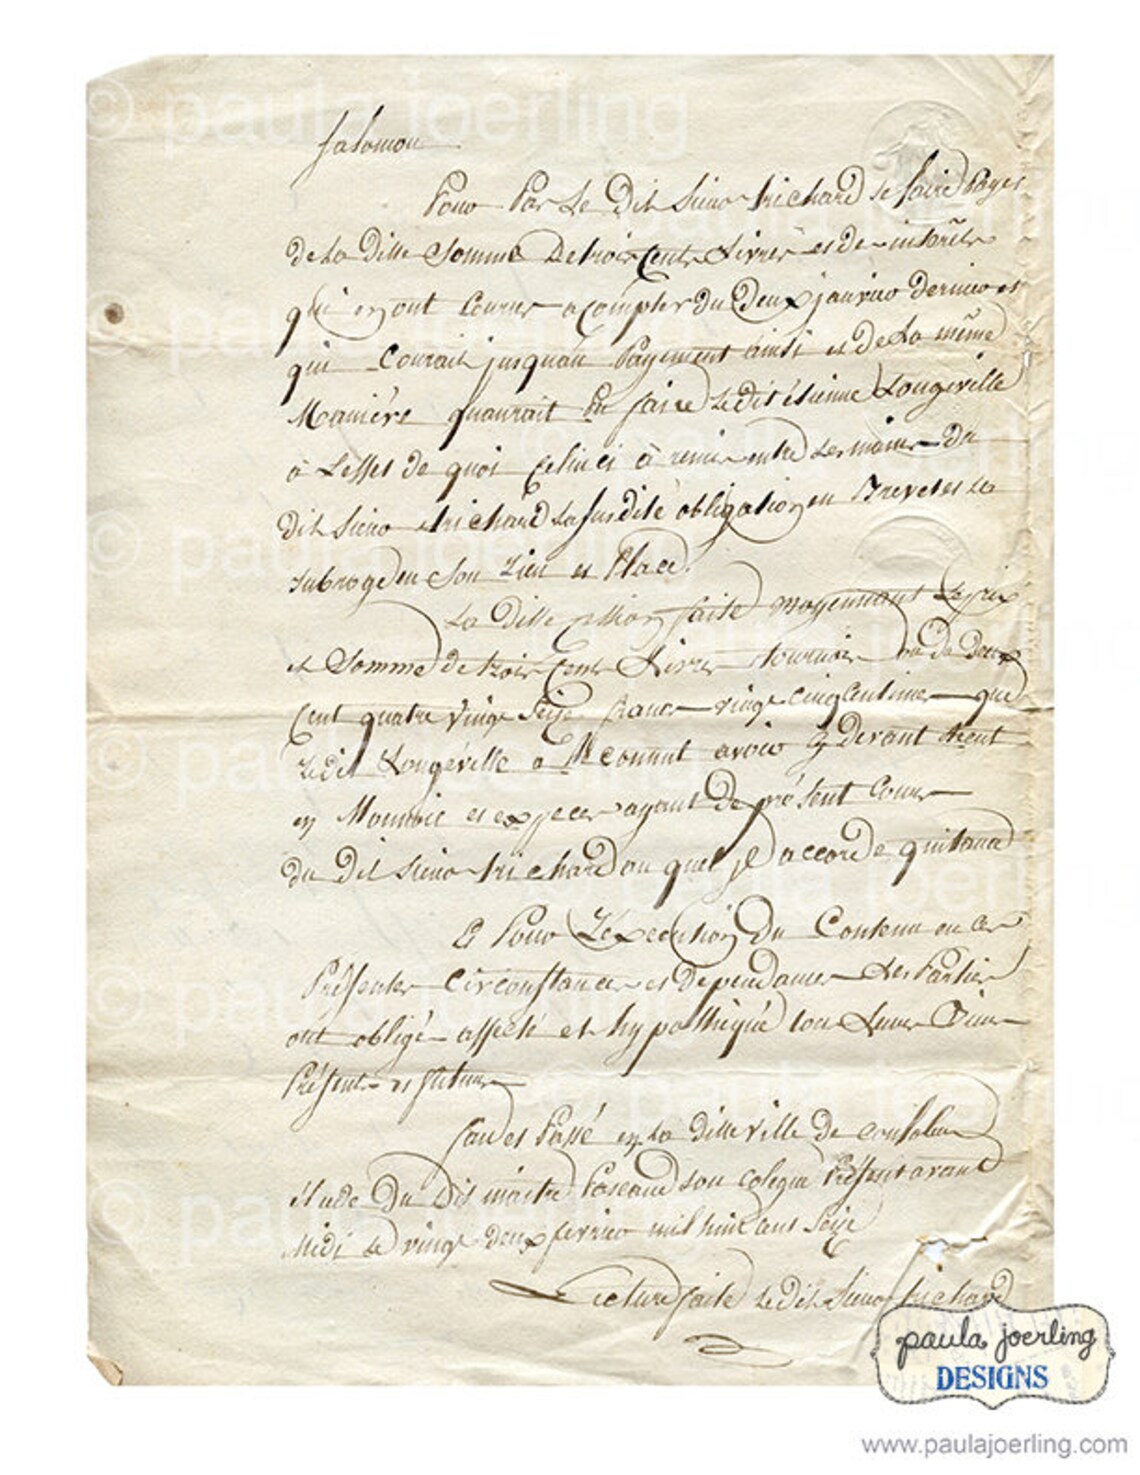 Salomon
Pour Par Le Dit Sieur trichard se faire Payer
de La Ditte Somme De trois Cents Livres et de interêts
qui en ont Courus a compter du Deux janvier dernier et
qui Courait jusquau Payement ainsi et de La même
Maniére quaurait Pu faire Ledit étienne Longeville
à Leffet de quoi Celui ci à remis entre Les mains du
dit Sieur trichard La susdite obligation en Brevet et La
subrogé en Son Lieu et Place.
La Ditte Cession faite moyennant Le prix
et Somme de trois Cents Livres tournois ou de Deux
Cent quatre vingt Seize francs vingt cinq Centimes que
Ledit Longéville a Reconnut avoir Cy devant Reçut
en Monnoie et espeçes ayant De présent Cours
du Dit Sieur trichard au quel jl accorde quitance
Et Pour L'éxecution Du Contenu au Ces
Présentes Circonstances et Dependances Les Parties
ont obligé affecté et hypothéqué tous Leurs Biens
Présents et futurs
fait et Passé en La ditte ville de Confolens
étude Du Dit maitre son colegue Présent avant
Midi Le vingt deux fevrier mil huit cent Seize
Lecture faite Le dit Sieur trichard
© paula joerling
paula joerling
DESIGNS
www.paulajoerling.com